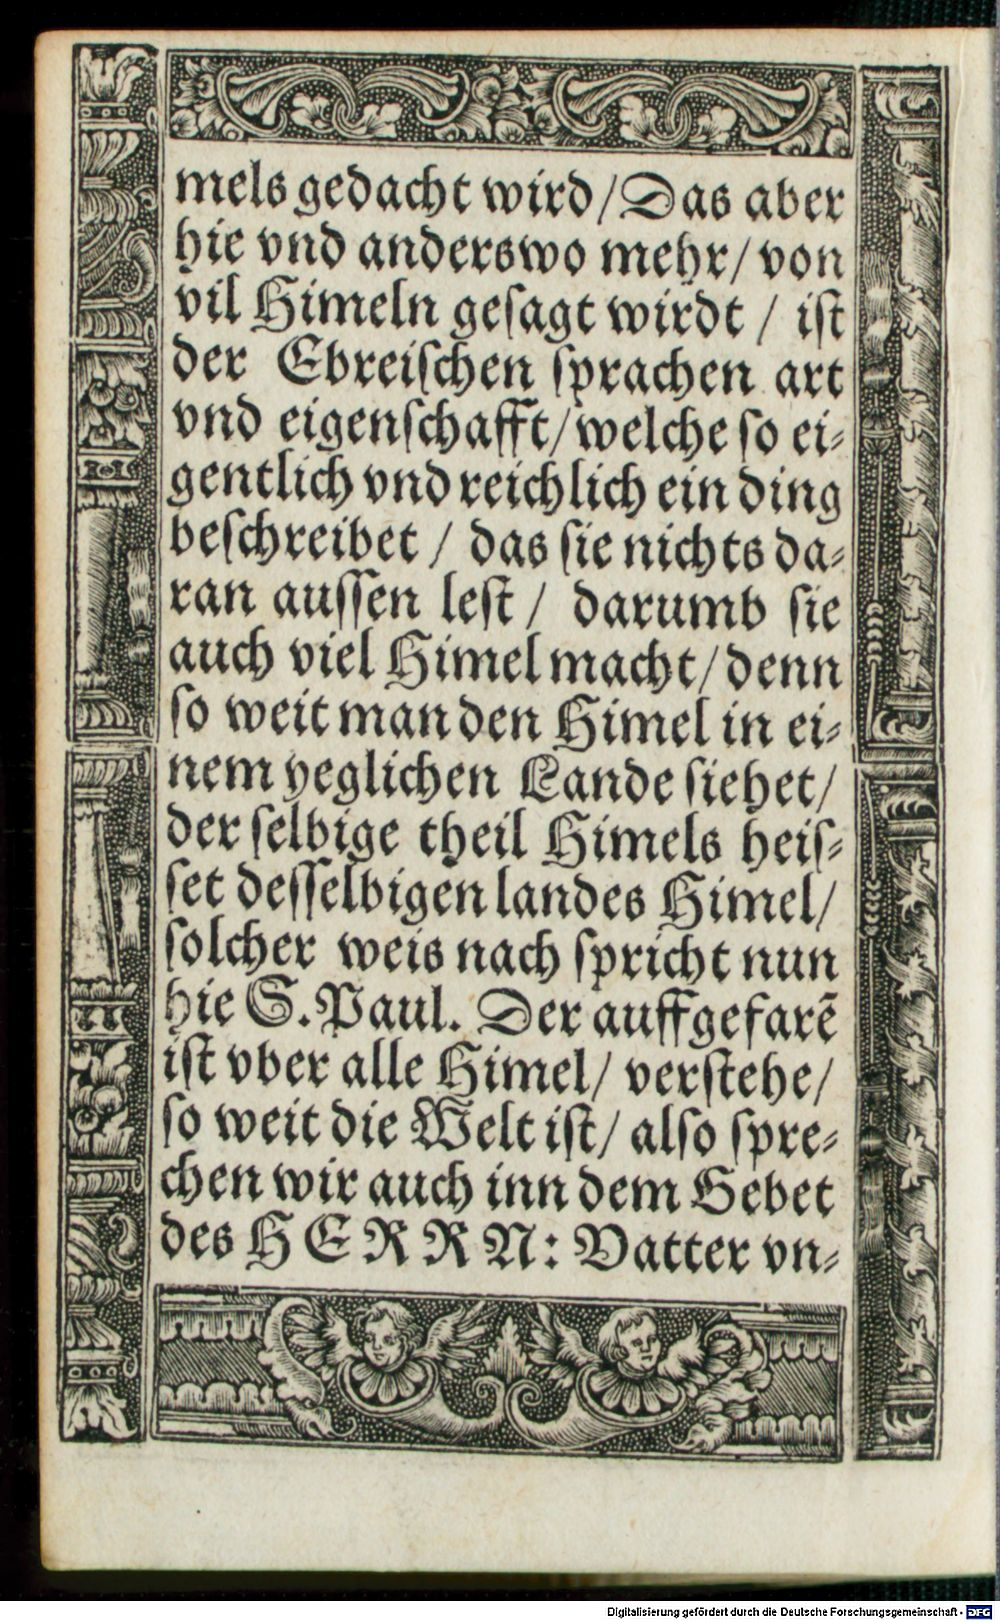 mels gedacht wird / Das aber
hie vnd anderswo mehr / von
vil Himeln geſagt wirdt / iſt
der Ebreiſchen ſprachen art
vnd eigenſchafft / welche ſo ei⸗
gentlich vnd reichlich ein ding
beſchreibet / das ſie nichts da⸗
ran auſſen leſt / darumb ſie
auch viel Himel macht / denn
ſo weit man den Himel in ei⸗
nem yeglichen Lande ſiehet /
der ſelbige theil Himels heiſ⸗
ſet deſſelbigen landes Himel /
ſolcher weis nach ſpricht nun
hie S. Paul. Der auffgefarē
iſt vber alle Himel / verſtehe /
ſo weit die Welt iſt / alſo ſpre⸗
chen wir auch inn dem Gebet
des HERRN: Vatter vn⸗
Digitalisierung gefördert durch die Deutsche Forschungsgemeinschaft - DFG